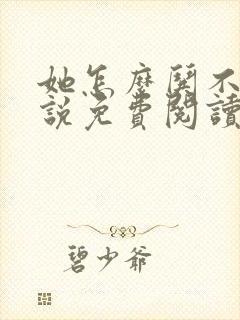 她怎麼鬨不
說免費閱讀
碧少爺